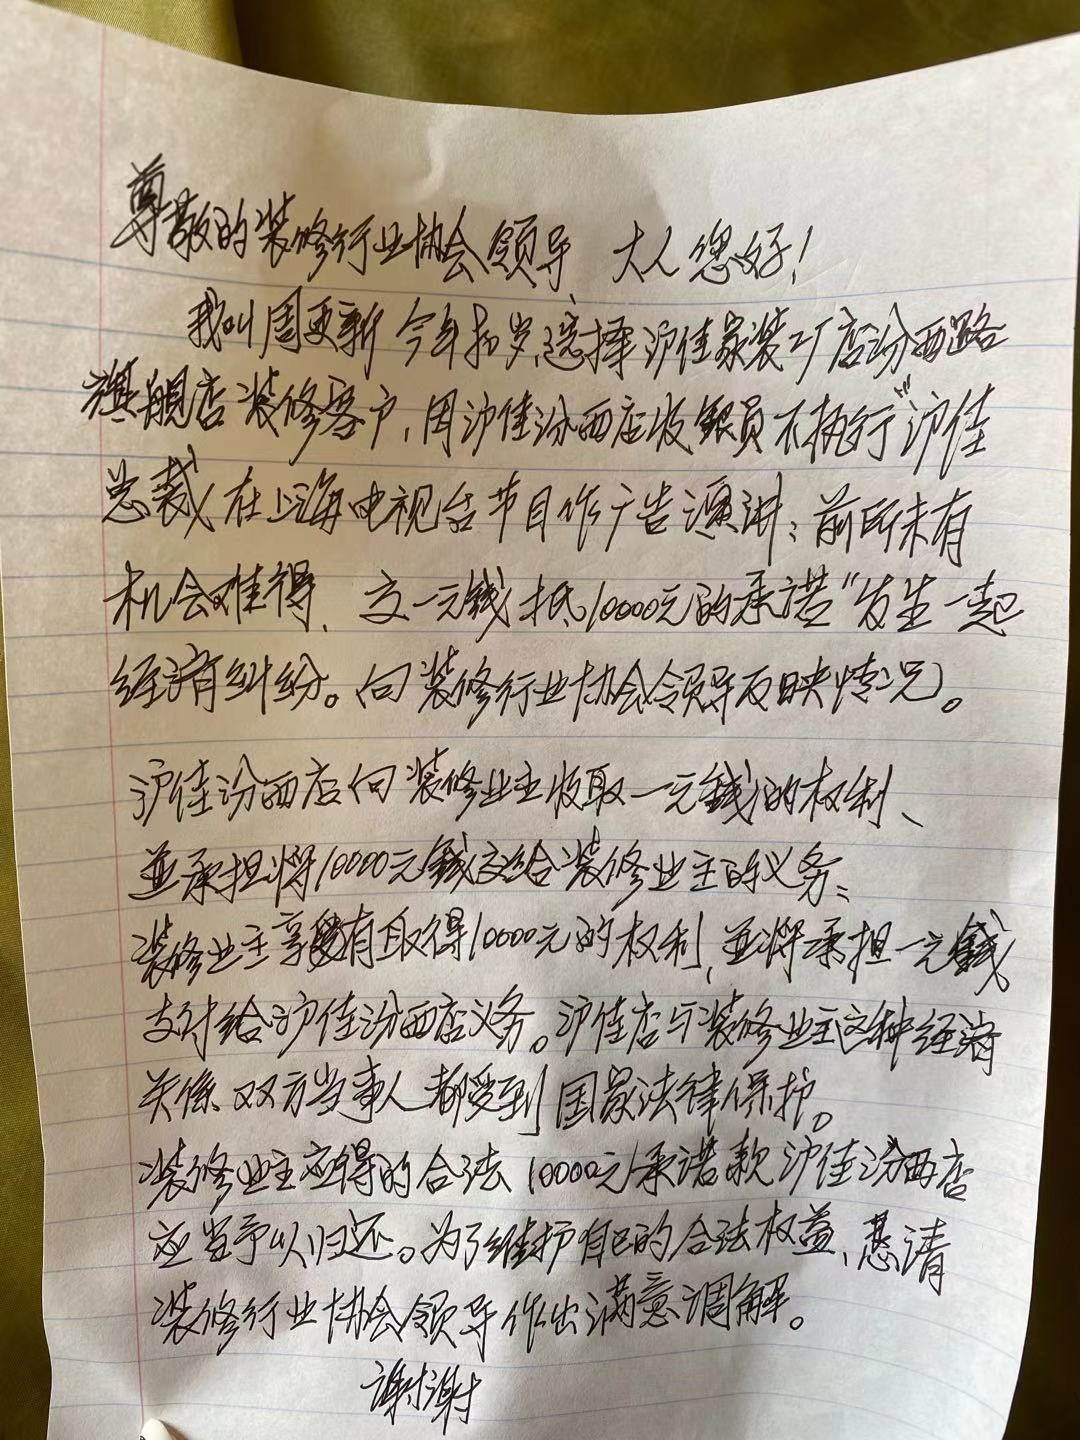 尊敬的装修行业协会领导、大人您好！
我叫周更新今年 岁、选择沪佳家装工厂店汾西路
旗舰店装修客户，因沪佳汾西店收银员不执行"沪佳
总裁在上海电视台节目作广告演讲：前所未有
机会难得，交一元钱抵10000元的承诺"发生一起
经济纠纷。向装修行业协会领导反映情况。
沪佳汾西店向装修业主收取一元钱的权利、
并承担将10000元钱交给装修业主的义务；
装修业主享有取得10000元的权利，并将承担一元钱
支付给沪佳汾西店义务。沪佳店与装修业主这种经济
关系双方当事人都受到国家法律保护。
装修业主应得的合法10000元承诺款沪佳汾西店
应当予以归还。为了维护自己的合法权益、恳请
装修行业协会领导作出满意调解。
谢谢